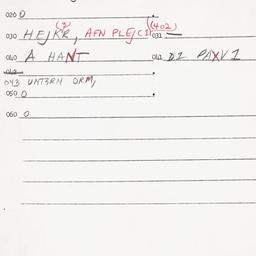 020 0
030 HEJKR, (2) AFN PLEJC1 (402) 031
040 A HANT 041 D1 PAXV1
042
043 UNT3RH ORM,
050 0
060 0